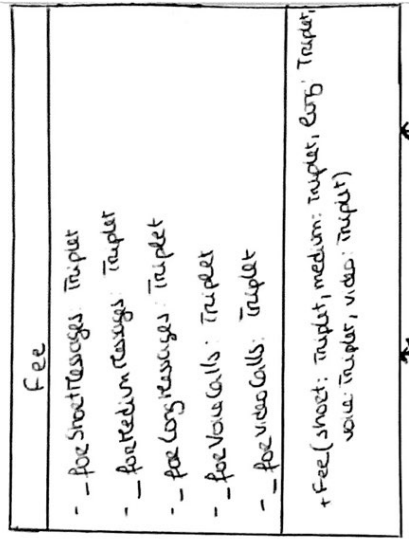 Fee
- _forShortMessages: Triplet
- _forMediumMessages: Triplet
- _forLongMessages: Triplet
- _forVoiceCalls: Triplet
- _forVideoCalls: Triplet
+ Fee(short: Triplet, medium: Triplet, long: Triplet,
voice: Triplet, video: Triplet)